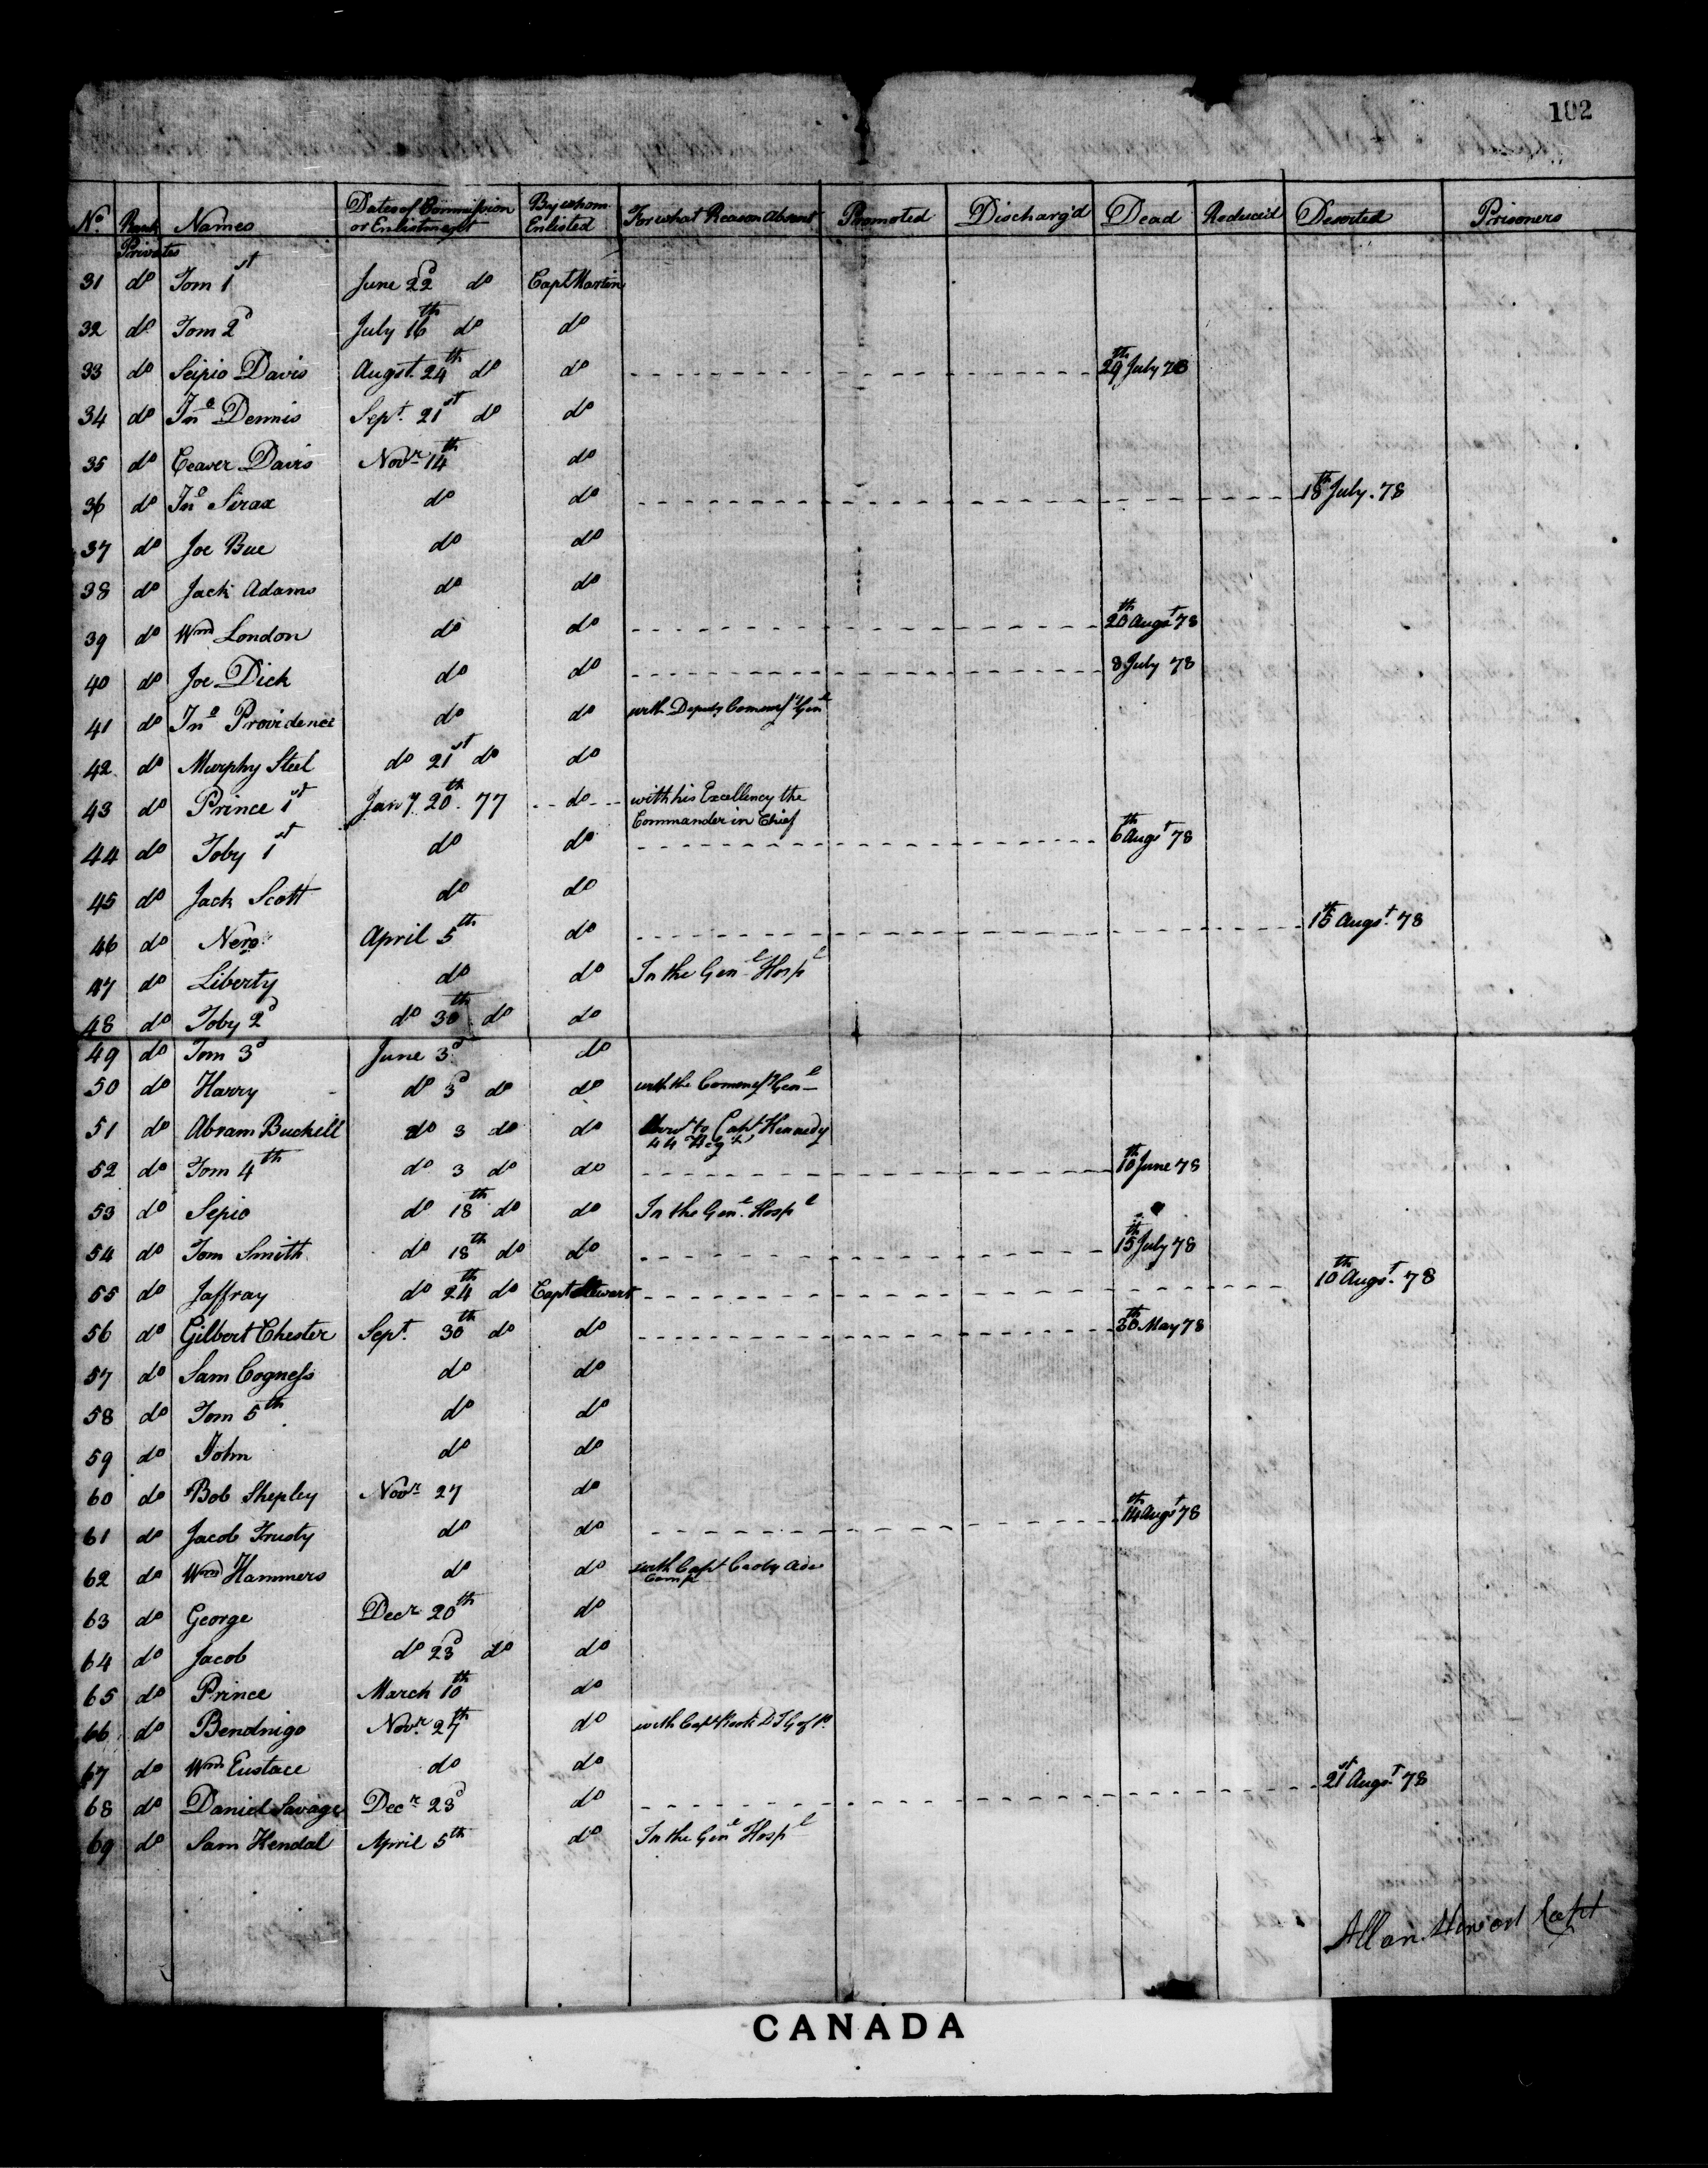 102
No. Rank Names Dates of Commission or Enlistment By whom Enlisted For what Reason Absent Promoted Discharg'd Dead Reduced Deserted Prisoners
Privates
31 do Tom 1st June 22d do Capt Martin
32 do Tom 2d July 16th do do
33 do Scipio Davis Augst. 24th do do 29th July 78
34 do Jno Dennis Sept. 21st do do
35 do Ceaver Davis Novr 14th do
36 do Jno Sirax do do 18th July. 78
37 do Joe Bue do do
38 do Jack Adams do do
39 do Wm London do do 20th Augst 78
40 do Joe Dick do do 8 July 78
41 do Jno Providence do do with Deputy Commy Genl
42 do Murphy Steel do 21st do do
43 do Prince 1st Jany 20th. 77 do with his Excellency the
Commander in Chief
44 do Toby 1st do do 6th Augst 78
45 do Jack Scott do do
46 do Nero April 5th do 15th Augst. 78
47 do Liberty do do In the Genl Hospl
48 do Toby 2d do 30th do do
49 do Tom 3d June 3d do
50 do Harry do 3d do do with the Commy Genl
51 do Abram Buckell do 3 do do Servt to Capt Kennedy
44 Regt
52 do Tom 4th do 3 do do 10th June 78
53 do Sepio do 18th do do In the Genl. Hospl
54 do Tom Smith do 18th do do 15th July 78
55 do Jaffray do 24th do Capt Stewart 10th Augst. 78
56 do Gilbert Chester Sept. 30th do do 30th May 78
57 do Sam Cogness do do
58 do Tom 5th do do
59 do John do do
60 do Bob Shepley Novr 27 do
61 do Jacob Trusty do do 14th Augst 78
62 do Wm Hammers do do with Capt Aid
Camp
63 do George Decr 20th do
64 do Jacob do 23d do do
65 do Prince March 10th do
66 do Bendnigo Novr. 27th do with Capt
67 do Wm Eustace do do
68 do Daniel Savage Decr 23d do 21st Augst. 78
69 do Sam Kendal April 5th do In the Genl Hospl
Allan Stewart Capt
CANADA